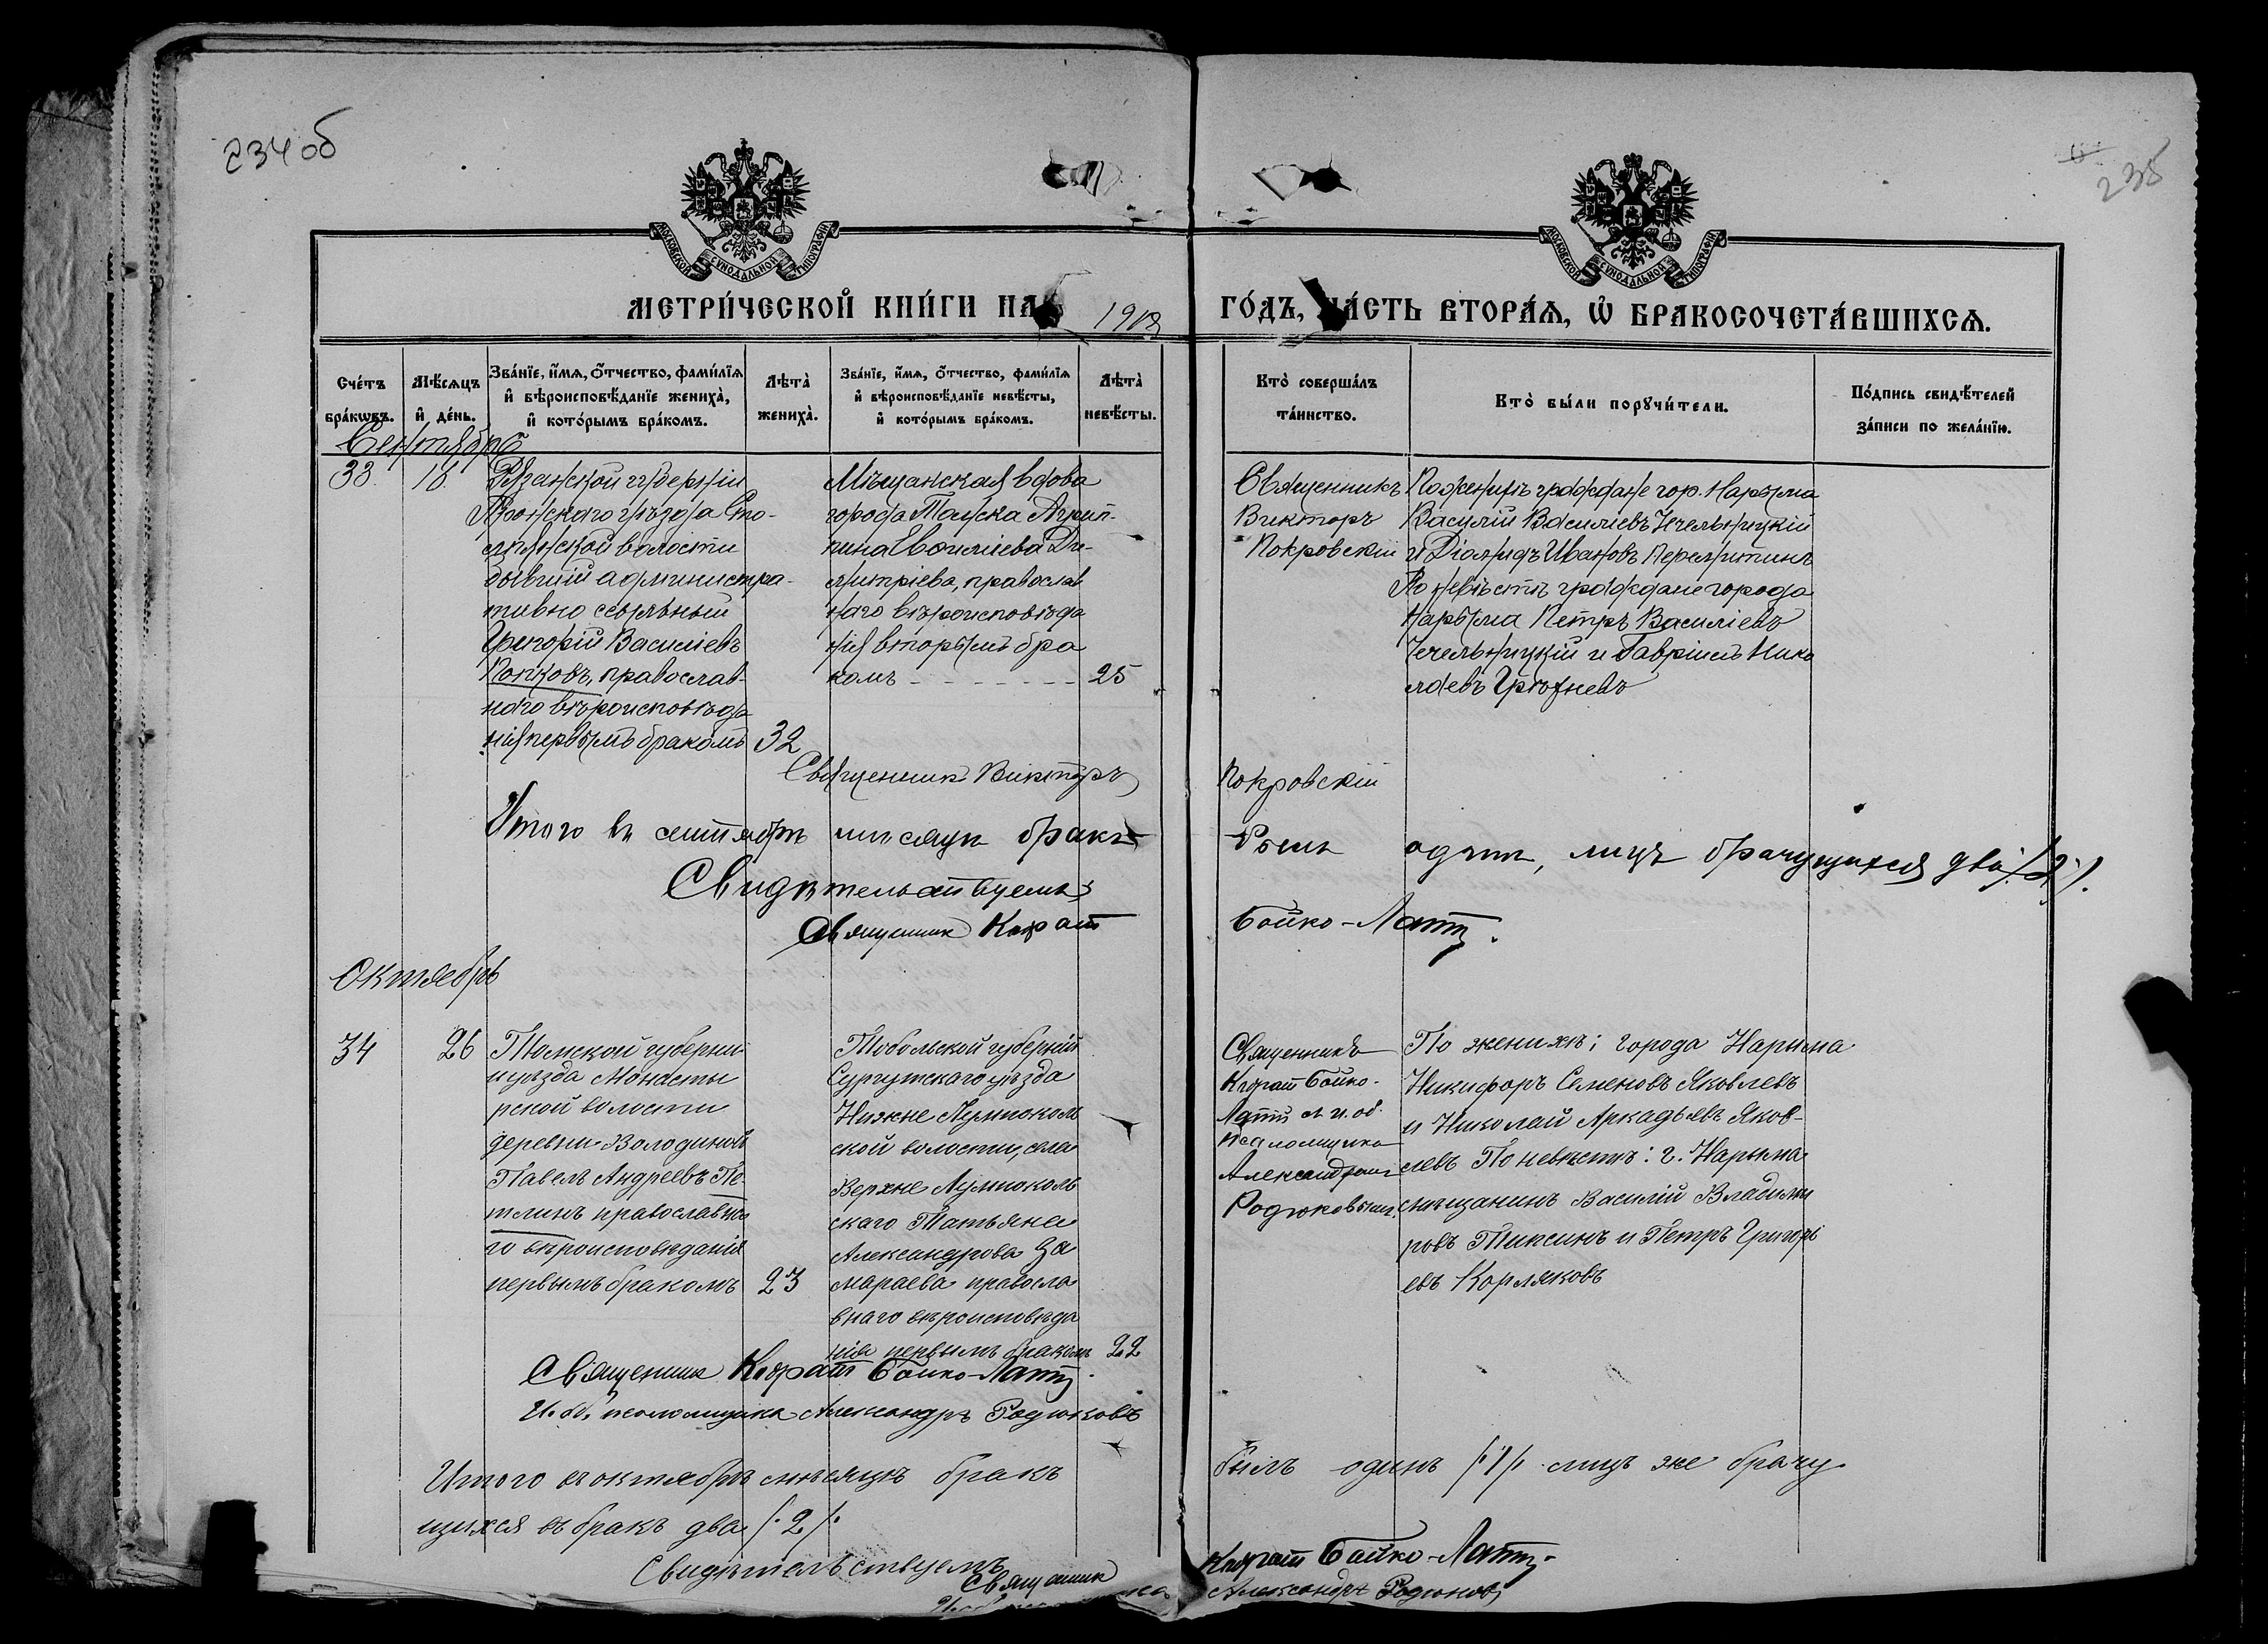 234об
235
МОСКОВСКОЙ СѴНОДАЛЬНОЙ ТИПОГРАФІИ
МОСКОВСКОЙ СѴНОДАЛЬНОЙ ТИПОГРАФІИ
МЕТРИ́ЧЕСКОЙ КНИ́ГИ НА 1918
ГО́ДЪ, ЧА́СТЬ ВТОРА́Ѧ, Ѽ БРАКОСОЧЕТА́ВШИХСѦ.
Сче́тъ бра́кѡвъ.
Мѣ́сѧцъ и҆ де́нь.
Зва́нїе, и҆́мѧ, ѻ҆́тчество, фами́лїѧ и҆ вѣроисповѣ́данїе жениха̀, и҆ кото́рымъ бра́комъ.
Лѣта̀ жениха̀.
Зва́нїе, и҆́мѧ, ѻ҆́тчество, фами́лїѧ и҆ вѣроисповѣ́данїе невѣ́сты, и҆ кото́рымъ бра́комъ.
Лѣта̀ невѣ́сты.
Кто̀ соверша́лъ та́инство.
Кто̀ бы́ли порꙋчи́тели.
По́дпись свидѣ́телей за́писи по жела́нїю.
Сентябрь
33.
18.
Рязанской губерніи
Пронскаго уѣзда Сто-
лпянской волости
бывшій администра-
тивно ссыльный
Григорій Василіевъ
Попковъ, православ-
наго вѣроисповѣда
нія первымъ бракомъ
32
Мѣщанская вдова
города Томска Агрип-
пина Василіева Ди-
митріева, православ
наго вѣроисповѣда
нія вторымъ бра
комъ
25
Священникъ
Викторъ
Покровскій
По женихѣ граждане гор. Нарыма
Василій Василіевъ Нечельницкій
и Діамидъ Ивановъ Перемитинъ
По невѣстѣ граждане города
Нарыма Петръ Василіевъ
Нечельницкій и Гавріилъ Нико
лаевъ Грѣхневъ
Священникъ Викторъ Покровскій
Итого въ сентябрѣ мѣсяцѣ бракъ былъ одинъ, лицъ брачущихся два /:2:/.
Свидѣтельствуемъ
Священник Кодрат Бойко-Латт.
Октябрь
34
26
Томской губерніи
и уѣзда Монасты
рской волости
деревни Володиной
Павелъ Андреевъ Пе-
тлинъ православна
го вѣроисповѣданія
первымъ бракомъ
23
Тобольской губерніи
Сургутскаго уѣзда
Нижне Лумпоколь
ской волости, села
Верхне Лумпоколь
скаго Татьяна
Александрова За
мараева правосла
внаго вѣроисповѣда
нія первымъ бракомъ
22
Священникъ
Кодрат Бойко-
Латт и и. об.
псаломщика
Александръ
Родюковъ
По женихѣ: города Нарыма
Никифоръ Семеновъ Яковлевъ
и Николай Аркадьевъ Яков-
левъ По невѣстѣ: г. Нарыма
мѣщанинъ Василій Владими
ровъ Тиксинъ и Петръ Григорі
евъ Корляковъ
Священник Кодрат Бойко-Латт.
И. об. псаломщика Александръ Родюковъ
Итого въ октябрѣ мѣсяцѣ бракъ былъ одинъ /:1/: лицъ же брачу
щихся въ бракѣ два /:2/:
Свидѣтельствуемъ
Священник Кодрат Бойко-Латт.
Александръ Родюковъ